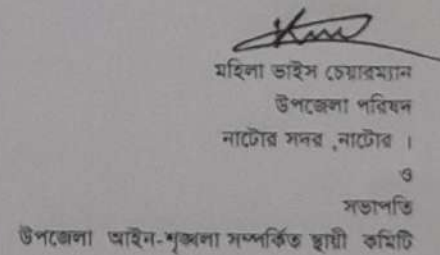 মহিলা ভাইস চেয়ারম্যান
উপজেলা পরিষদ
নাটোর সদর ,নাটোর ।
ও
সভাপতি
উপজেলা আইন-শৃঙ্খলা সম্পর্কিত স্থায়ী কমিটি